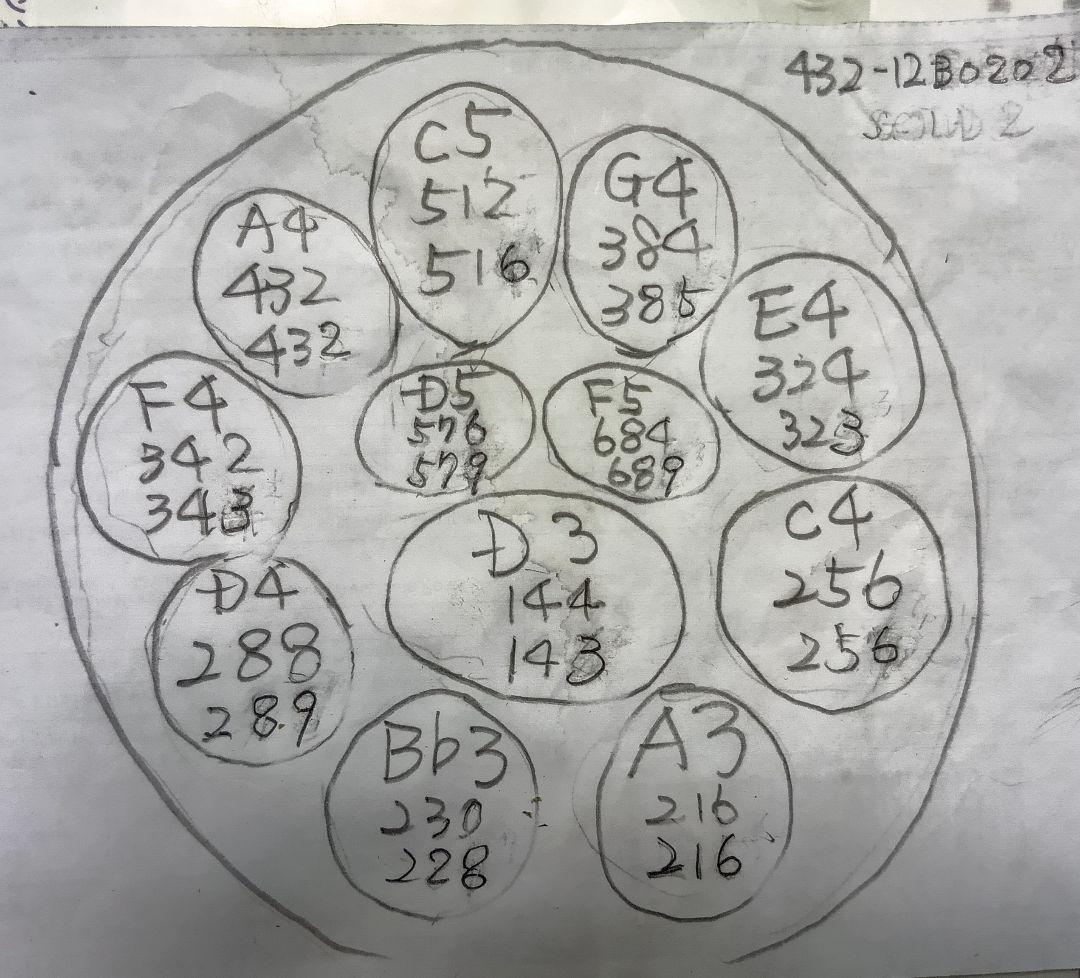 432-12B0202
C5
512
516
G4
384
385
A4
432
432
E4
324
323
D5
576
579
F5
684
689
F4
342
343
D3
144
143
C4
256
256
D4
288
289
Bb3
230
228
A3
216
216